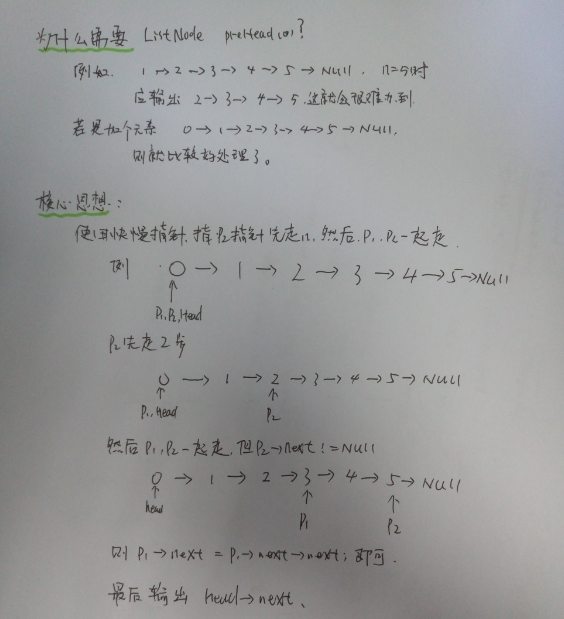 为什么需要 ListNode preHead(0)?
例如. 1→2→3→4→5→Null. n=5时
应输出 2→3→4→5.这就会很难办到.
若是加个元素 0→1→2→3→4→5→Null,
则就比较好处理了。
核心思想:
使用快慢指针, P2指针先走n, 然后P1, P2一起走.
例 0→1→2→3→4→5→Null
P1,P2,Head
P2先走2步
0→1→2→3→4→5→Null
P1, Head P2
然后P1, P2一起走, 但P2→next!=Null
0→1→2→3→4→5→Null
head P1 P2
则 P1→next = P1→next→next; 即可.
最后输出 head→next、